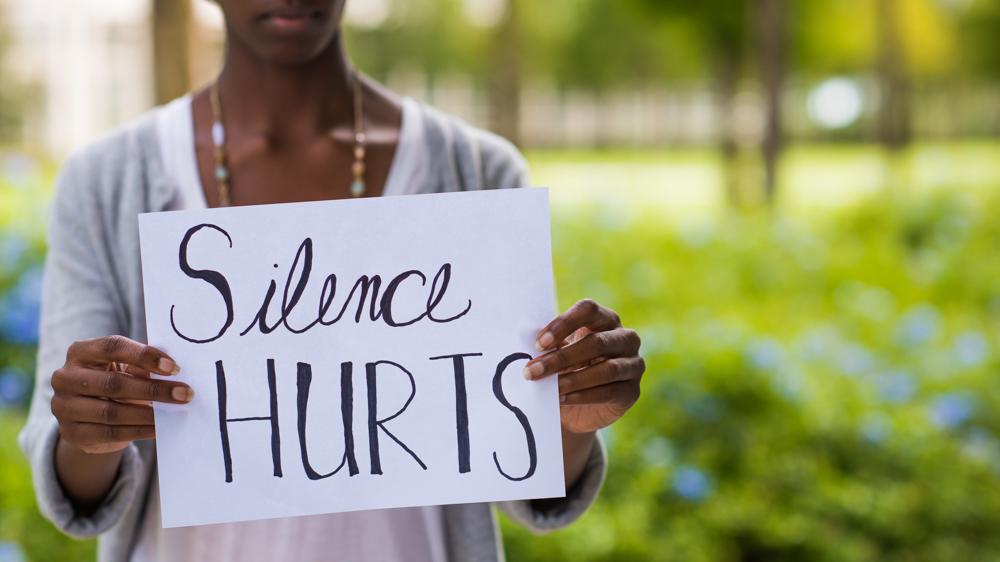 Silence
HURTS